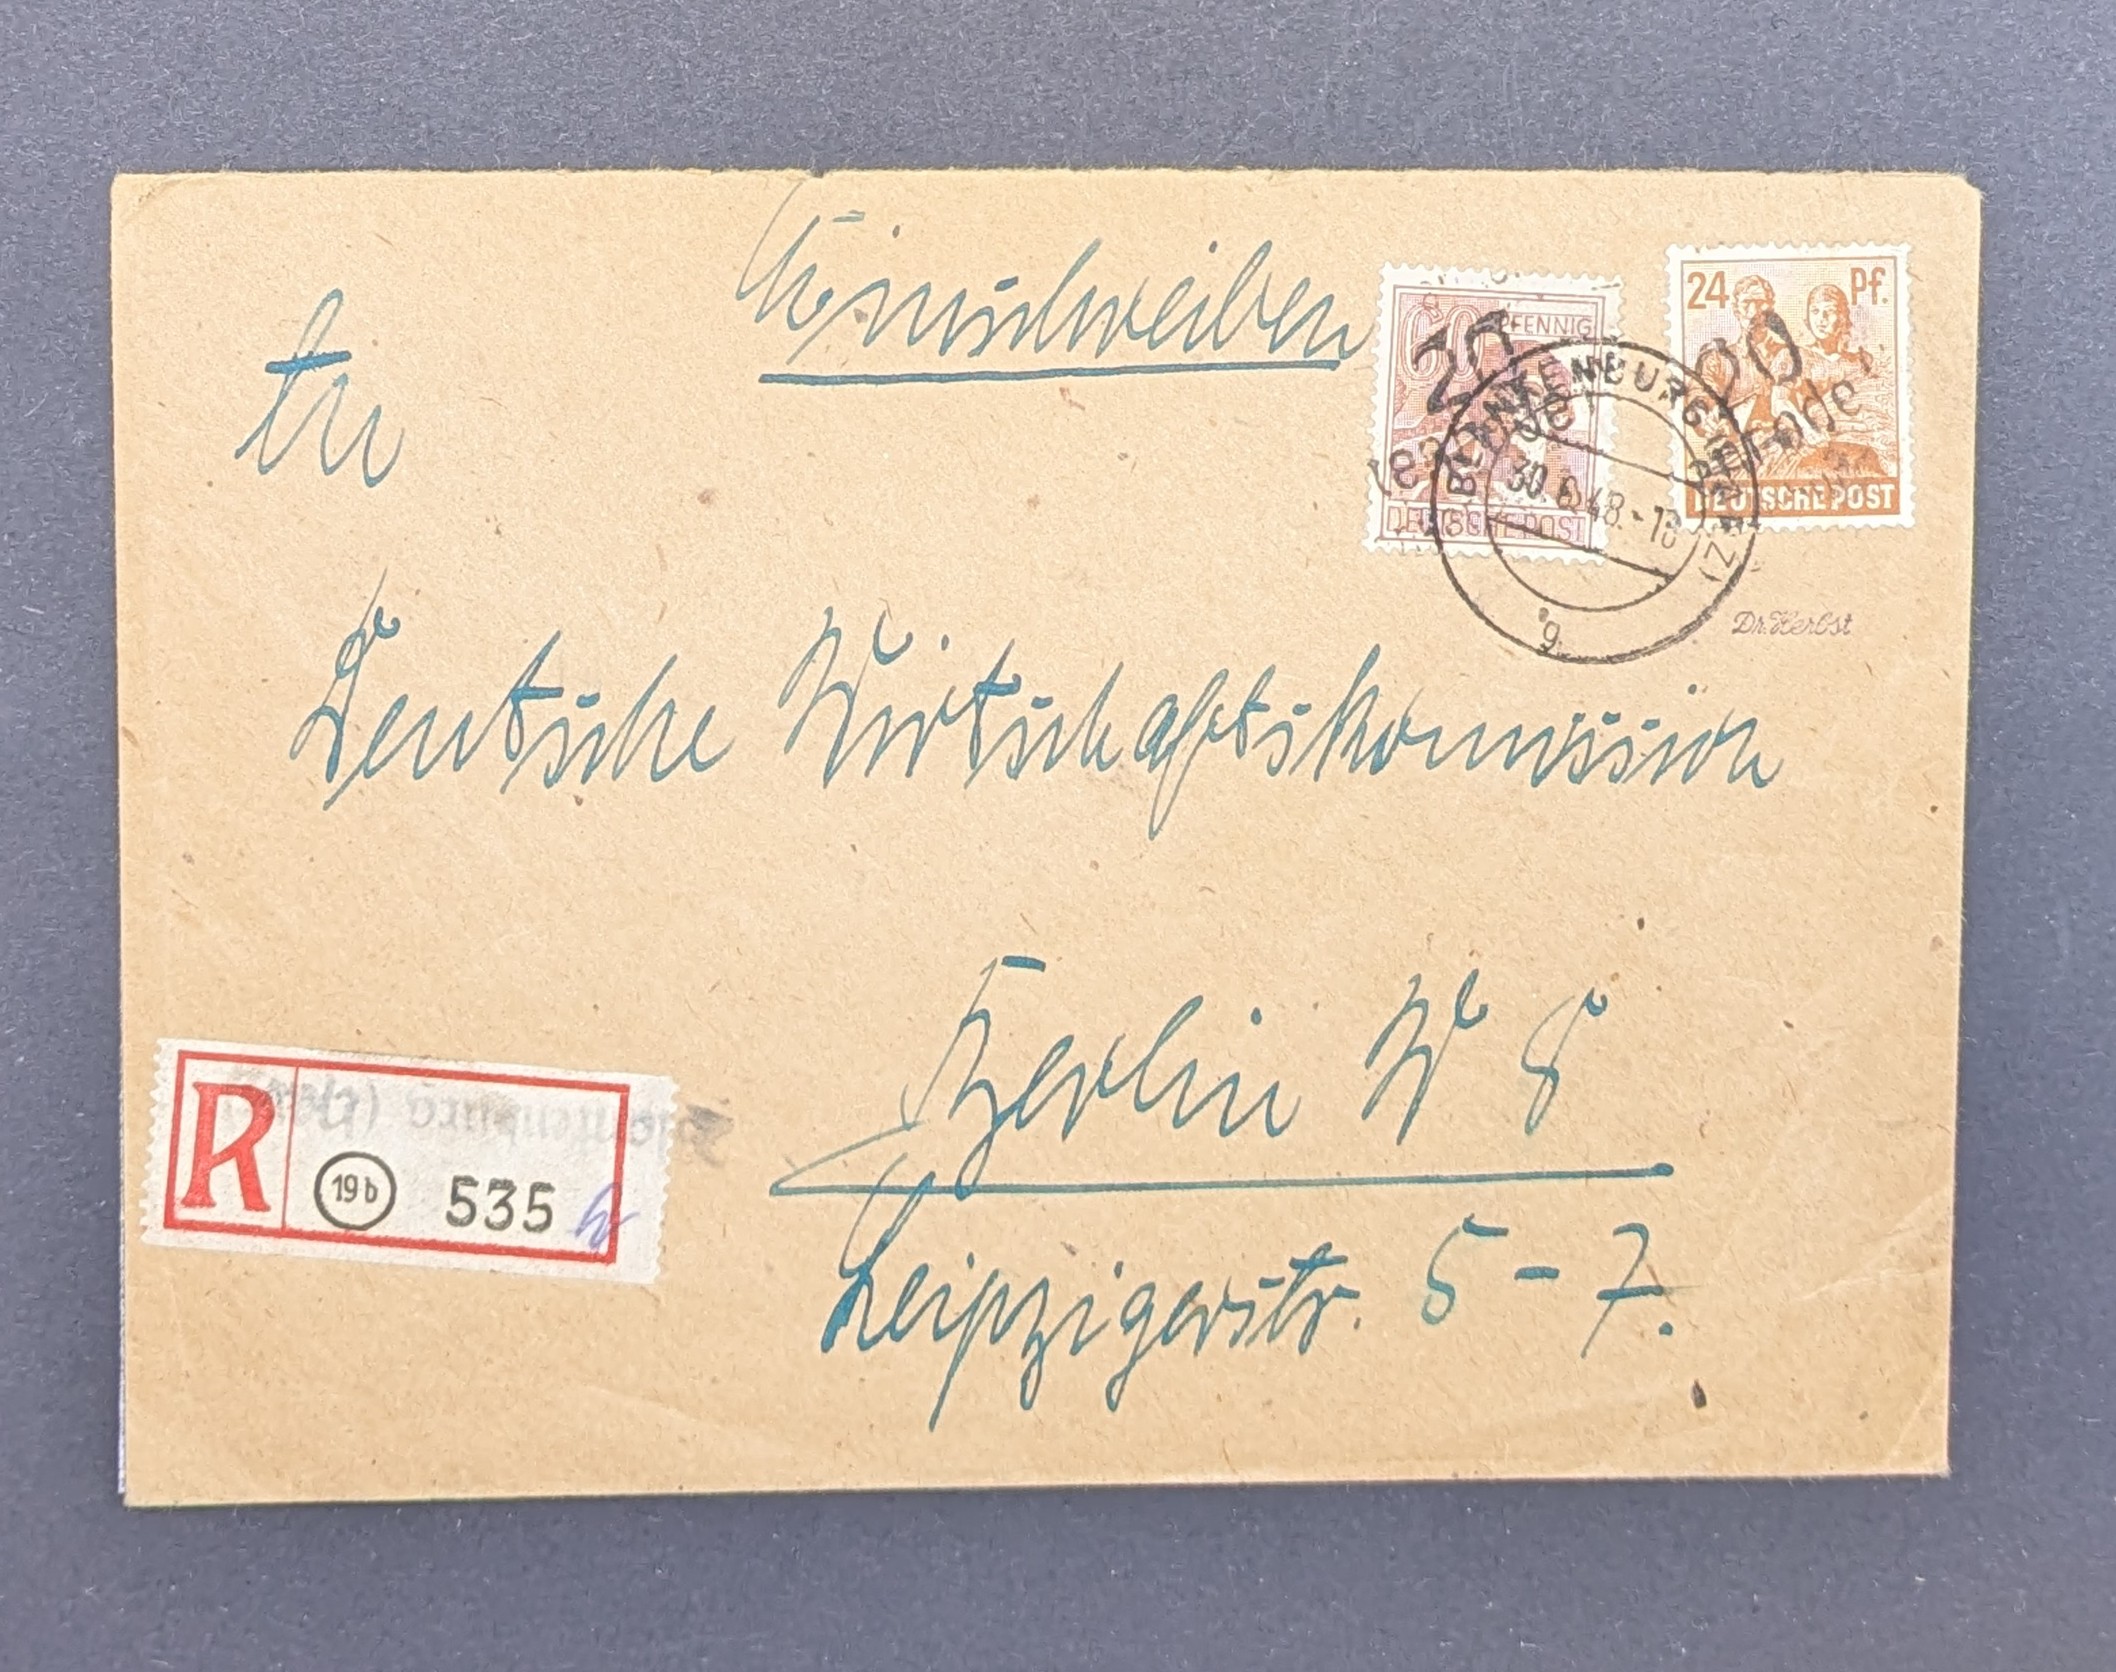 Einschreiben
An
60 PFENNIG
DEUTSCHE POST
24 Pf.
DEUTSCHE POST
20
20
BLANKENBURG (HARZ)
30.6.48.-18
g
Dr. Herbst
Deutsche Wirtschaftskommission
Berlin W 8
Leipzigerstr. 5-7.
R
19b 535